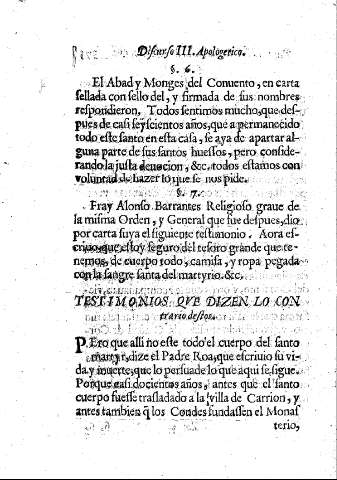 Discurso III. Apologetico.
§. 6.
El Abad y Monges del Conuento, en carta
sellada con sello del, y firmada de sus nombres
respondieron. Todos sentimos mucho, que des-
pues de casi seyscientos años, que a permanecido
todo este santo en esta casa, se aya de apartar al-
guna parte de sus santos huessos, pero conside-
rando la justa deuocion, &c. todos estamos con
voluntad de hazer lo que se nos pide.
§. 7.
Fray Alonso Barrantes Religioso graue de
la misma Orden, y General que fue despues, dio
por carta suya el siguiente testimonio. Aora es-
criuo, que estoy seguro del tesoro grande que te-
nemos, de cuerpo todo, camisa, y ropa pegada
con la sangre santa del martyrio. &c.
TESTIMONIOS QVE DIZEN LO CON
trario destos.
PEro que alli no este todo el cuerpo del santo
martyr, dize el Padre Roa, que escriuio su vi-
da y muerte, que lo persuade lo que aqui se sigue.
Porque casi docientos años, antes que el santo
cuerpo fuesse trasladado a la villa de Carrion, y
antes tambien q̃ los Condes fundassen el Monas
terio,